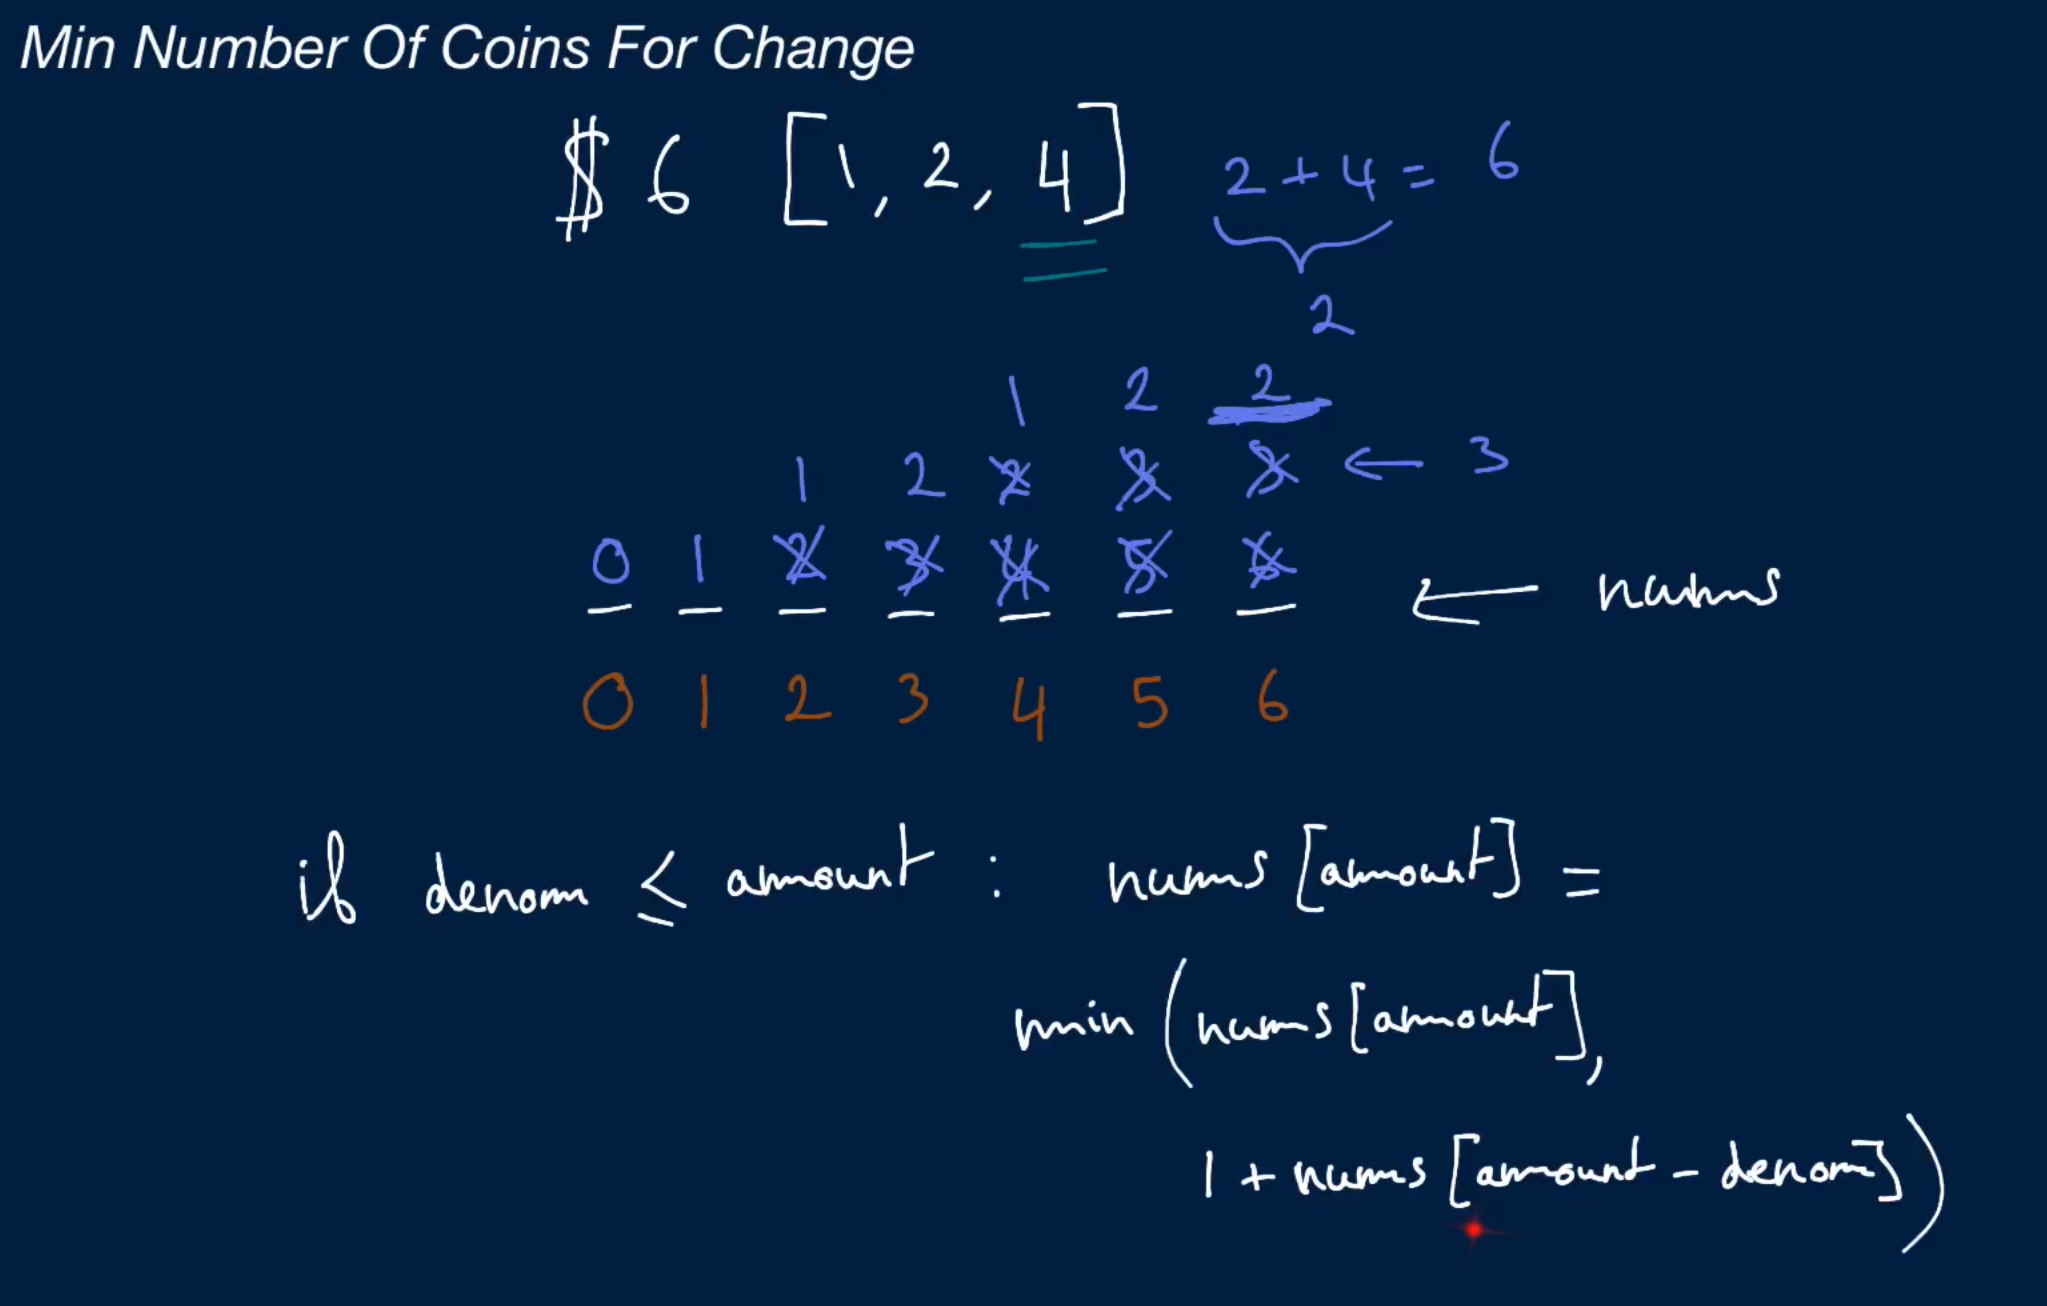 Min Number Of Coins For Change
$ 6 [1, 2, 4] 2 + 4 = 6
2
1 2 2
1 2 2 3 3 ← 3
0 1 2 3 4 5 6 ← nums
0 1 2 3 4 5 6
if denom ≤ amount : nums [amount] =
min (nums [amount],
1 + nums [amount - denom])